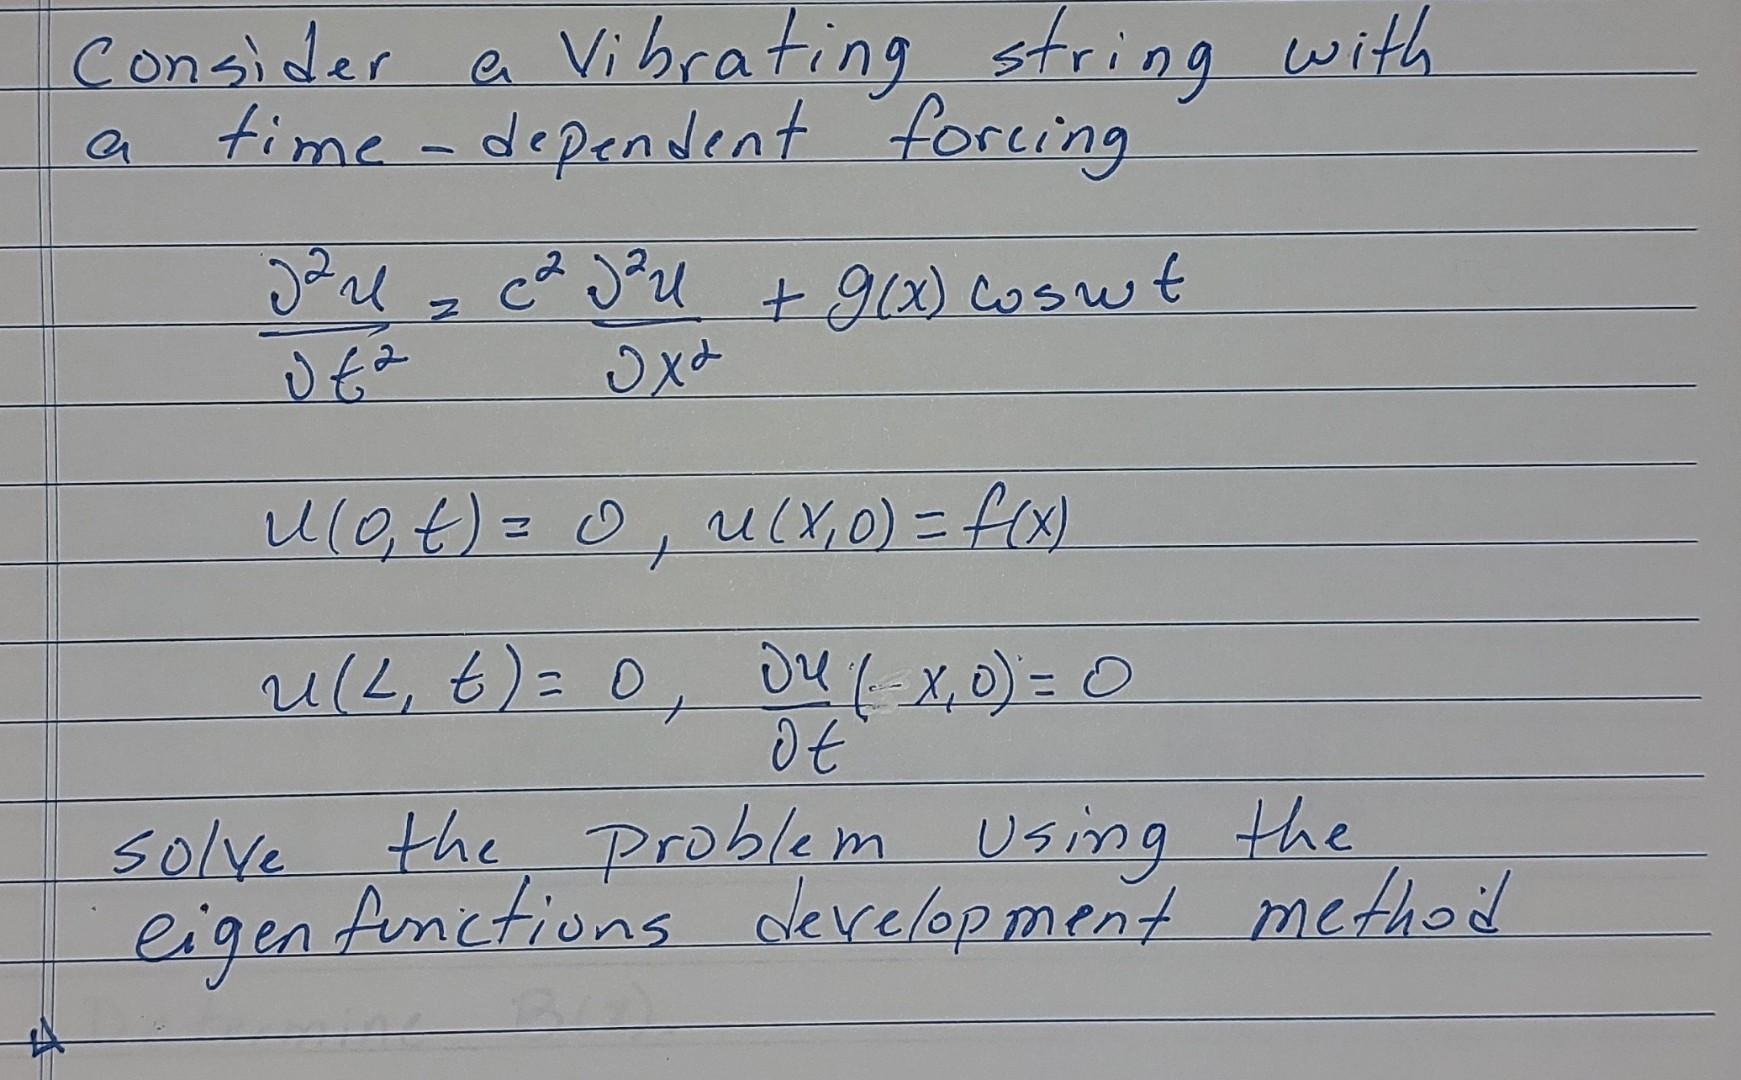 Consider a Vibrating string with
a time-dependent forcing
∂²u/∂t² = c² ∂²u/∂x² + g(x) cos wt
u(0,t) = 0, u(x,0) = f(x)
u(L, t) = 0, ∂u/∂t (x,0) = 0
solve the problem using the
eigenfunctions development method